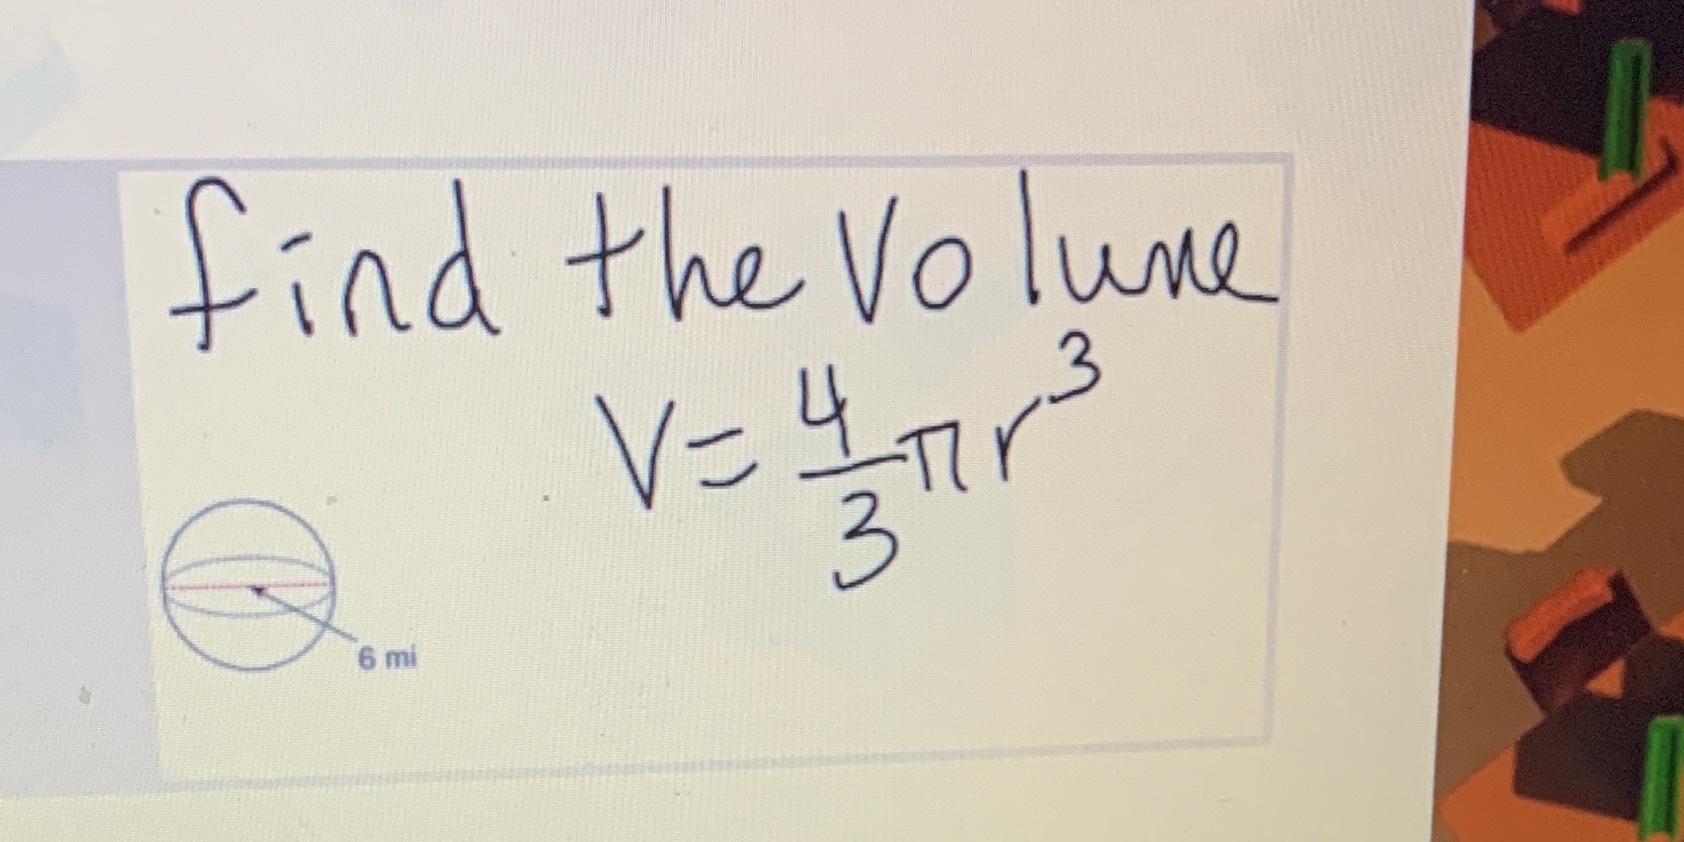 find the volume
V = 4/3 πr³
6 mi